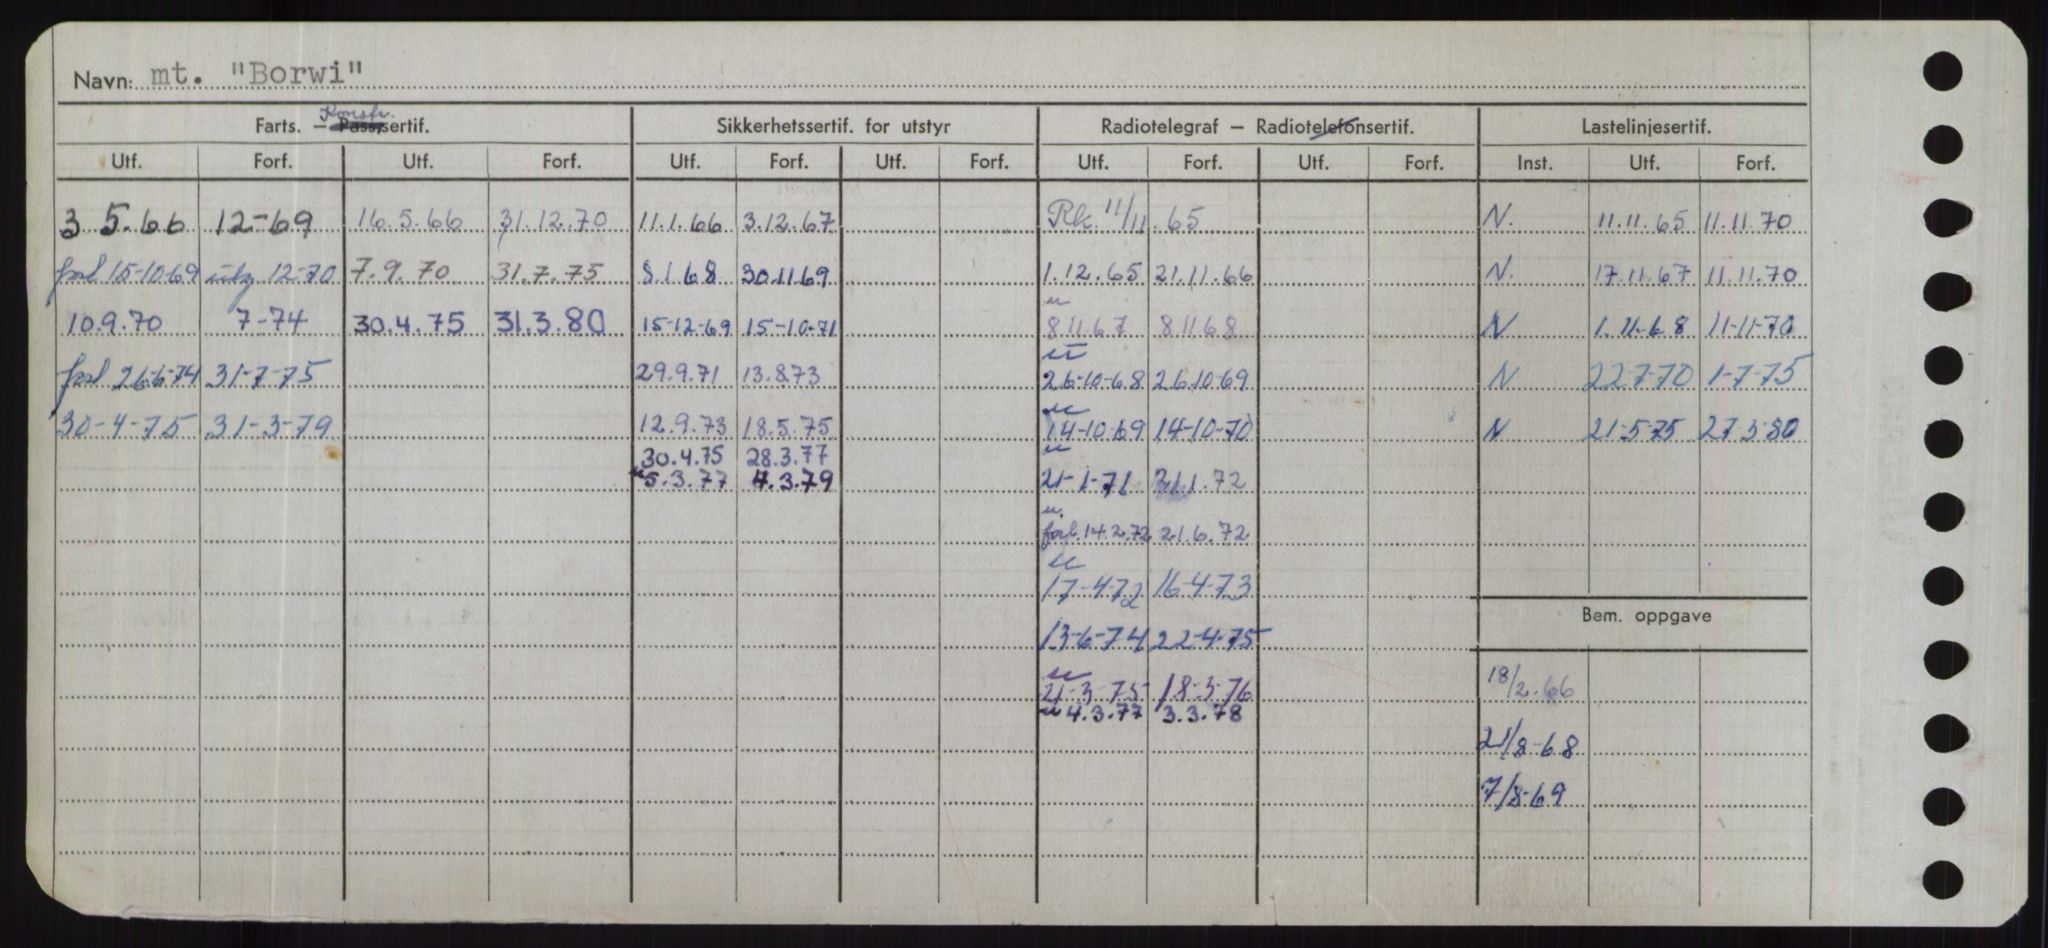 Navn: mt. "Borwi"
Konstr.
Farts. — Pass.sertif. Sikkerhetssertif. for utstyr Radiotelegraf — Radiotelefonsertif. Lastelinjesertif.
Utf. Forf. Utf. Forf. Utf. Forf. Utf. Forf. Utf. Forf. Utf. Forf. Inst. Utf. Forf.
3.5.66 12-69 16.5.66 31.12.70 11.1.66 3.12.67 Rk. 11/11.65 N. 11.11.65 11.11.70
forl 15-10-69 utg. 12-70 7.9.70 31.7.75 8.1.68 30.11.69 1.12.65 21.11.66 N. 17.11.67 11.11.70
u
10.9.70 7-74 30.4.75 31.3.80 15-12-69 15-10-71 8.11.67 8.11.68 N 1.11-68 11-11-70
u
forl 26-6-74 31-7-75 29.9.71 13.8.73 26-10-68 26.10-69 N 22-7-70 1-7-75
u
30-4-75 31-3-79 12.9.73 18.5.75 14-10-69 14-10-70 N 21-5-75 27.3.80
u
30.4.75 28.3.77
u 5.3.77 4.3.79 21-1-71 21.1.72
u.
forl. 14.2.72 21.6.72
u
17-4-72 16-4-73
Bem. oppgave
13-6-74 22-4-75
u
21-3-75 18-3-76 18/2.66
u 4.3.77 3.3.78
21/8-68
7/8-69